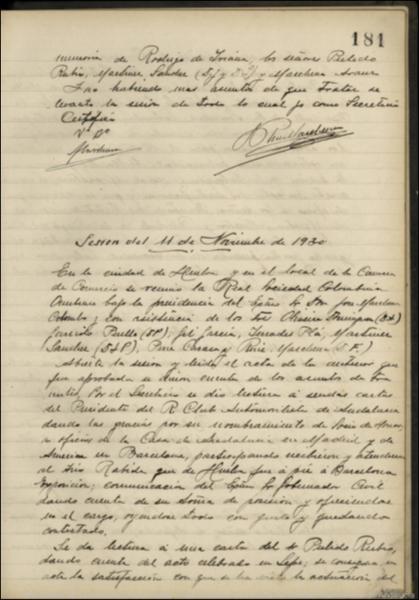 181
memoria de Rodrigo de Triana, los señores Pulido
Rubio, Martínez Sánchez (D J y D F) y Marchena
Y no habiendo mas asuntos de que tratar se
levanta la sesión de todo lo cual yo como Secretario
Certifico
Vº Bº
Sesion del 11 de Noviembre de 1930
En la ciudad de Huelva y en el local de la Camara
de Comercio se reunio la Real Sociedad Colombina
Onubense bajo la presidencia del Señor Don José Marchena
Colombo; con asistencia de los Sres
García, Terrades Plá, Martínez
Sánchez (D J P), y Ruiz Marchena (D F.)
Abierta la sesión y leida el acta de la anterior que
fue aprobada se dieron cuenta de los asuntos de tra
mite. Por el Secretario se dio lectura a sendas cartas
del Presidente del R Club Automovilista de Andalucia
dando las gracias por su nombramiento de Socio de
u oficios de la Casa de Andalucia en Madrid y de
America en Barcelona, participando recibieron y atendieron
al Trio Rabida que de Huelva fue a pié a Barcelona
Exposicion; comunicacion del Gobernador Civil
dando cuenta de su toma de posesion y ofreciendose
en el cargo, oyendose todo con gusto y quedando
contestado.
Se da lectura a una carta del Sr Pulido Rubio,
dando cuenta del acto celebrado en Lepe; se consigna en
acta la satisfacción con que se ha visto la actuación del